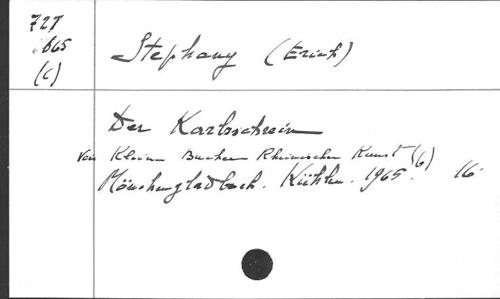 727
.665
(c)
Stephany (Erich)
Der Karlsschrein
von Kleine Bucher Rheinischer Kunst (6)
Mönchengladbach. Kühlen. 1965. 16